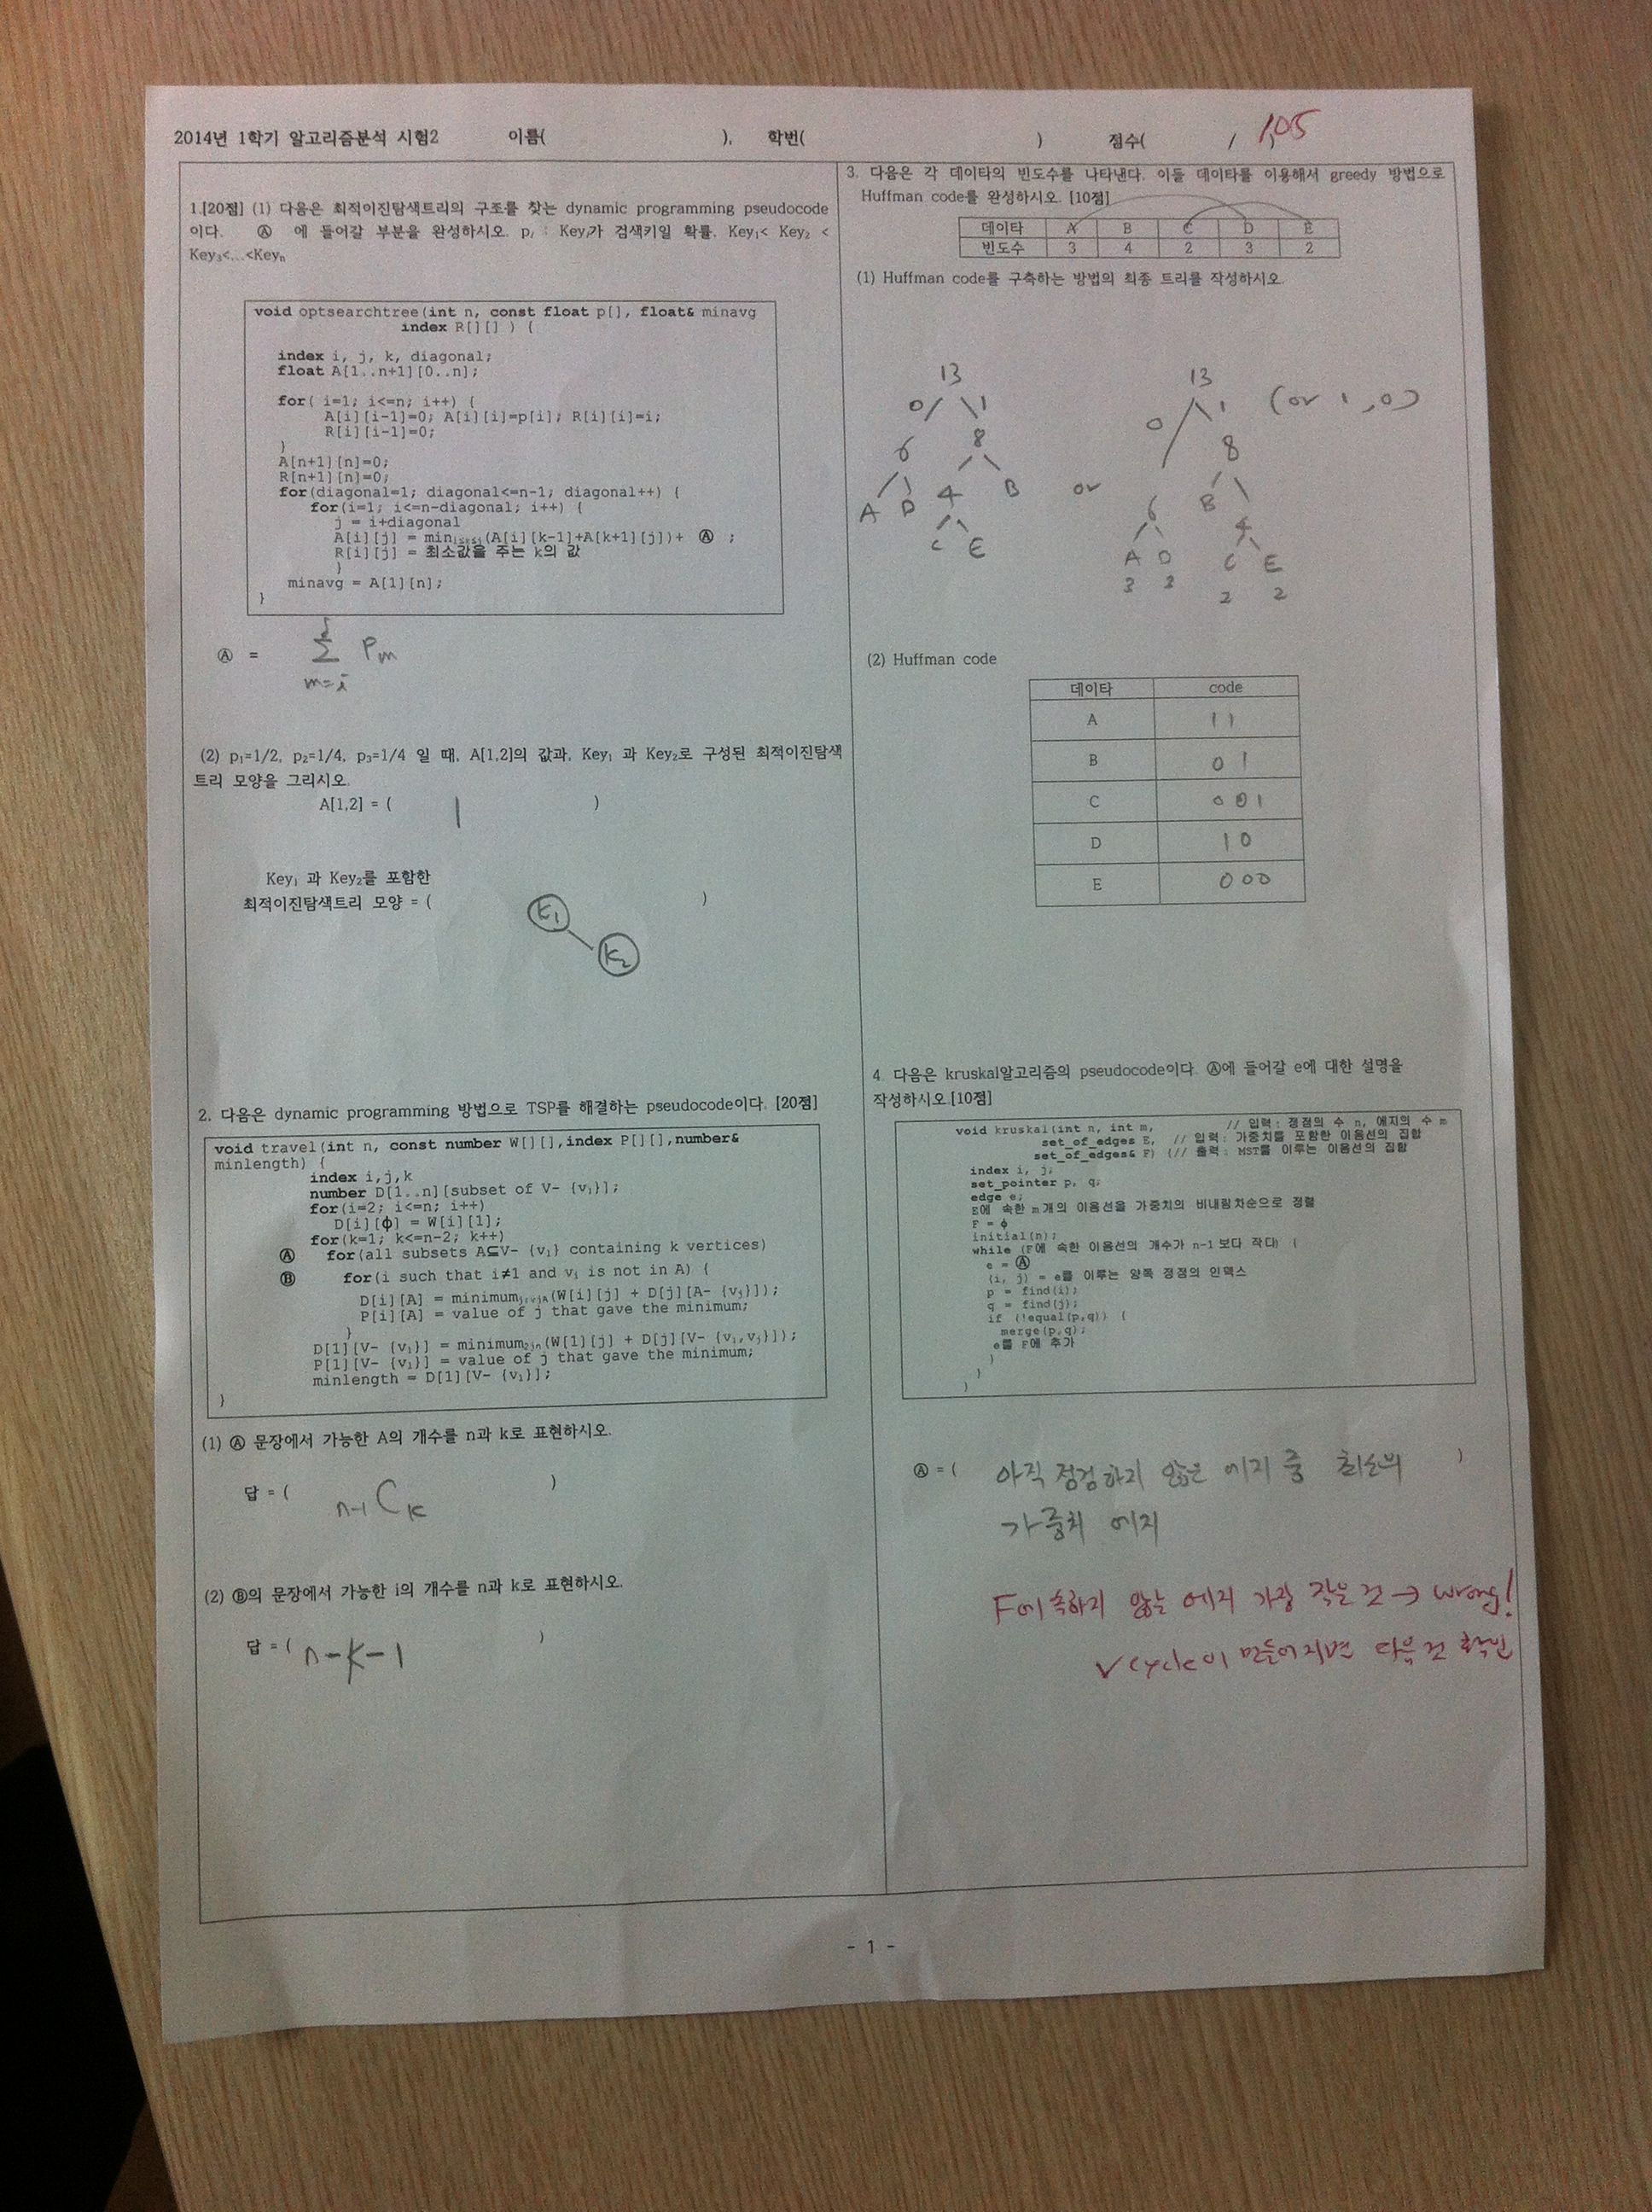 2014년 1학기 알고리즘분석 시험2 이름( ), 학번( ) 점수( / 105
1.[20점] (1) 다음은 최적이진탐색트리의 구조를 찾는 dynamic programming pseudocode
이다. Ⓐ 에 들어갈 부분을 완성하시오. pᵢ : Keyᵢ가 검색키일 확률. Key₁< Key₂ <
Key₃<...<Keyₙ
void optsearchtree(int n, const float p[], float& minavg
index R[][] ) {
index i, j, k, diagonal;
float A[1..n+1][0..n];
for( i=1; i<=n; i++) {
A[i][i-1]=0; A[i][i]=p[i]; R[i][i]=i;
R[i][i-1]=0;
}
A[n+1][n]=0;
R[n+1][n]=0;
for(diagonal=1; diagonal<=n-1; diagonal++) {
for(i=1; i<=n-diagonal; i++) {
j = i+diagonal
A[i][j] = minᵢ≤ₖ≤ⱼ(A[i][k-1]+A[k+1][j])+ Ⓐ ;
R[i][j] = 최소값을 주는 k의 값
}
minavg = A[1][n];
}
j
Ⓐ = Σ Pm
m=i
(2) p₁=1/2, p₂=1/4, p₃=1/4 일 때, A[1,2]의 값과, Key₁ 과 Key₂로 구성된 최적이진탐색
트리 모양을 그리시오.
A[1,2] = ( 1 )
Key₁ 과 Key₂를 포함한
최적이진탐색트리 모양 = ( )
K₁
K₂
2. 다음은 dynamic programming 방법으로 TSP를 해결하는 pseudocode이다. [20점]
void travel(int n, const number W[][],index P[][],number&
minlength) {
index i,j,k
number D[1..n][subset of V- {v₁}];
for(i=2; i<=n; i++)
D[i][ϕ] = W[i][1];
for(k=1; k<=n-2; k++)
Ⓐ for(all subsets A⊆V- {v₁} containing k vertices)
Ⓑ for(i such that i≠1 and vᵢ is not in A) {
D[i][A] = minimum (W[i][j] + D[j][A- {vⱼ}]);
P[i][A] = value of j that gave the minimum;
}
D[1][V- {v₁}] = minimum (W[1][j] + D[j][V- {v₁,vⱼ}]);
P[1][V- {v₁}] = value of j that gave the minimum;
minlength = D[1][V- {v₁}];
}
(1) Ⓐ 문장에서 가능한 A의 개수를 n과 k로 표현하시오.
답 = ( n-1 C k )
(2) Ⓑ의 문장에서 가능한 i의 개수를 n과 k로 표현하시오.
답 = ( n-k-1 )
3. 다음은 각 데이타의 빈도수를 나타낸다. 이들 데이타를 이용해서 greedy 방법으로
Huffman code를 완성하시오. [10점]
데이타 A B C D E
빈도수 3 4 2 3 2
(1) Huffman code를 구축하는 방법의 최종 트리를 작성하시오.
13 13
0 1 0 1 (or 1,0)
6 8 8
A D 4 B or 6 B 4
C E A D C E
3 3 2 2
(2) Huffman code
데이타 code
A 11
B 01
C 001
D 10
E 000
4. 다음은 kruskal알고리즘의 pseudocode이다. Ⓐ에 들어갈 e에 대한 설명을
작성하시오.[10점]
void kruskal(int n, int m, // 입력: 정점의 수 n, 에지의 수 m
set_of_edges E, // 입력: 가중치를 포함한 이음선의 집합
set_of_edges& F) {// 출력: MST를 이루는 이음선의 집합
index i, j;
set_pointer p, q;
edge e;
E에 속한 m개의 이음선을 가중치의 비내림차순으로 정렬
F = ϕ
initial(n);
while (F에 속한 이음선의 개수가 n-1보다 작다) {
e = Ⓐ
(i, j) = e를 이루는 양쪽 정점의 인덱스
p = find(i);
q = find(j);
if (!equal(p,q)) {
merge(p,q);
e를 F에 추가
}
}
}
Ⓐ = ( 아직 점검하지 않은 에지 중 최소의 )
가중치 에지
F에 속하지 않는 에지 가장 작은 것 → wrong!
√ cycle이 만들어지면 다음 것 확인
- 1 -